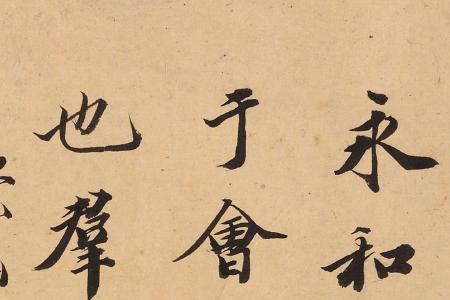 永和
于會
也羣